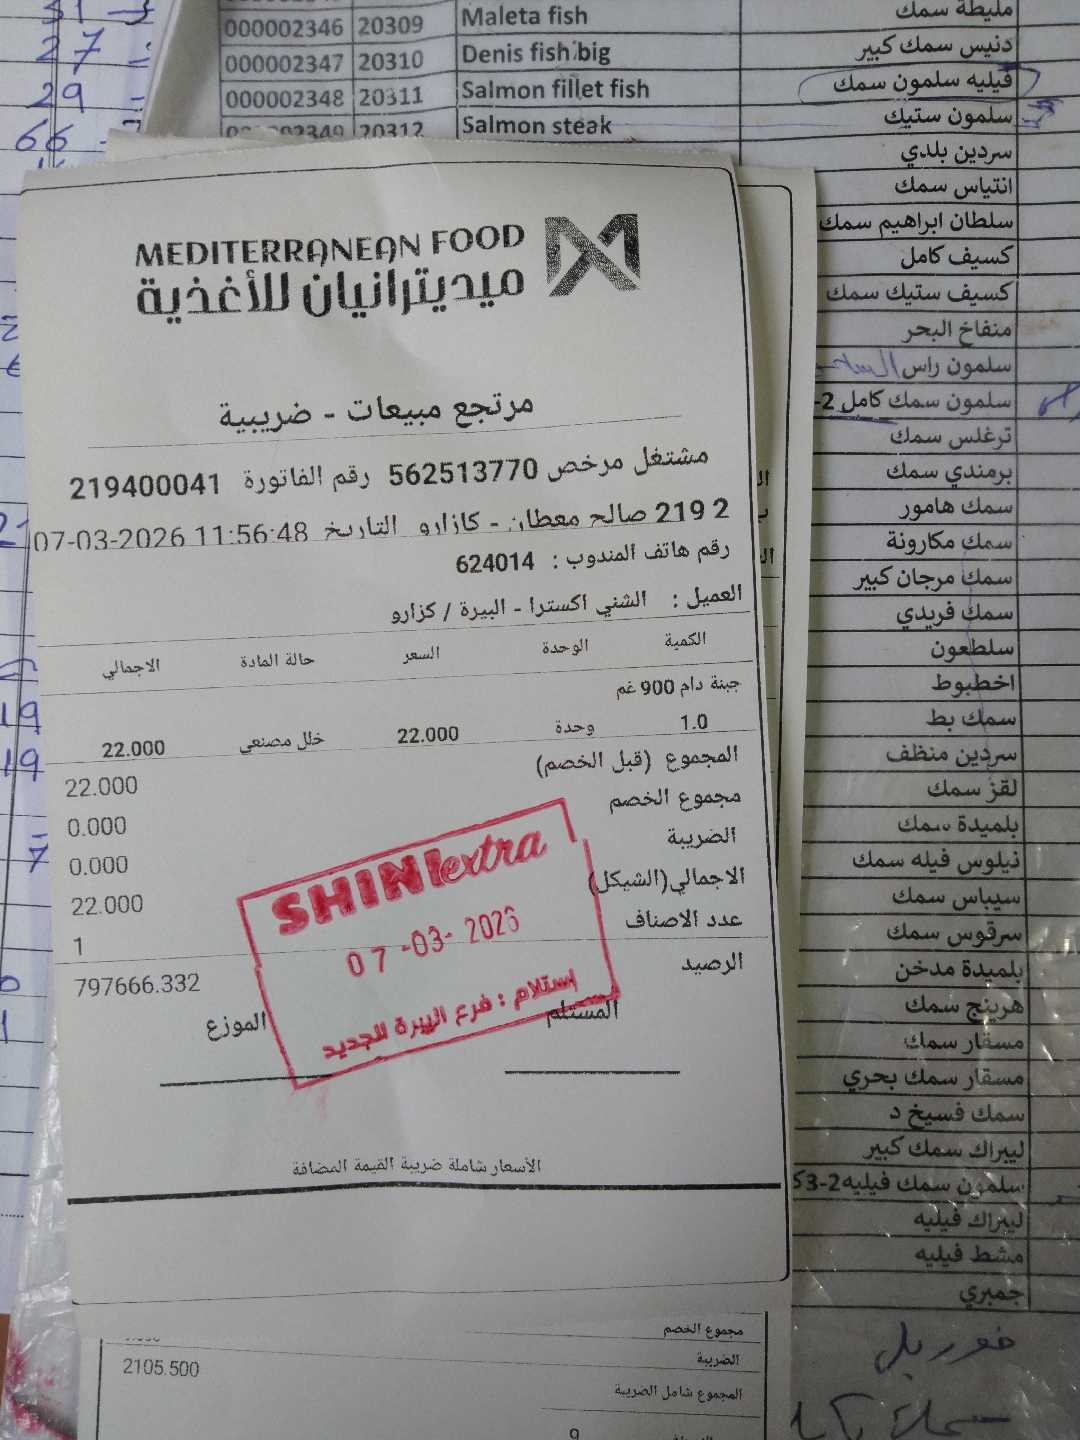 000002346 20309 Maleta fish مليطة سمك
000002347 20310 Denis fish big دنيس سمك كبير
000002348 20311 Salmon fillet fish فيليه سلمون سمك
000002349 20312 Salmon steak سلمون ستيك
سردين بلدي
انتياس سمك
سلطان ابراهيم سمك
كسيف كامل
كسيف ستيك سمك
منفاخ البحر
سلمون راس
سلمون سمك كامل 2-
ترغلس سمك
برمندي سمك
سمك هامور
سمك مكارونة
سمك مرجان كبير
سمك فريدي
سلطعون
اخطبوط
سمك بط
سردين منظف
لقز سمك
بلميدة سمك
نيلوس فيله سمك
سيباس سمك
سرقوس سمك
بلميدة مدخن
هرينج سمك
مسقار سمك
مسقار سمك بحري
سمك فسيخ د
ليبراك سمك كبير
سلمون سمك فيليه 2-3ك
ليبراك فيليه
مشط فيليه
جمبري
27
29
66
19
19
7
MEDITERRANEAN FOOD
ميديترانيان للأغذية
مرتجع مبيعات - ضريبية
مشتغل مرخص 562513770 رقم الفاتورة 219400041
2 219 صالح معطان - كازارو التاريخ 07-03-2026 11:56:48
رقم هاتف المندوب : 624014
العميل : الشني اكسترا - البيرة / كزارو
الكمية الوحدة السعر حالة المادة الاجمالي
جبنة دام 900 غم
1.0 وحدة 22.000 خلل مصنعي 22.000
المجموع (قبل الخصم) 22.000
مجموع الخصم 0.000
الضريبة 0.000
الاجمالي(الشيكل) 22.000
عدد الاصناف 1
الرصيد 797666.332
المستلم الموزع
SHINI extra
07-03-2026
إستلام : فرع البيرة الجديد
الأسعار شاملة ضريبة القيمة المضافة
مجموع الخصم
الضريبة
2105.500
المجموع شامل الضريبة
9